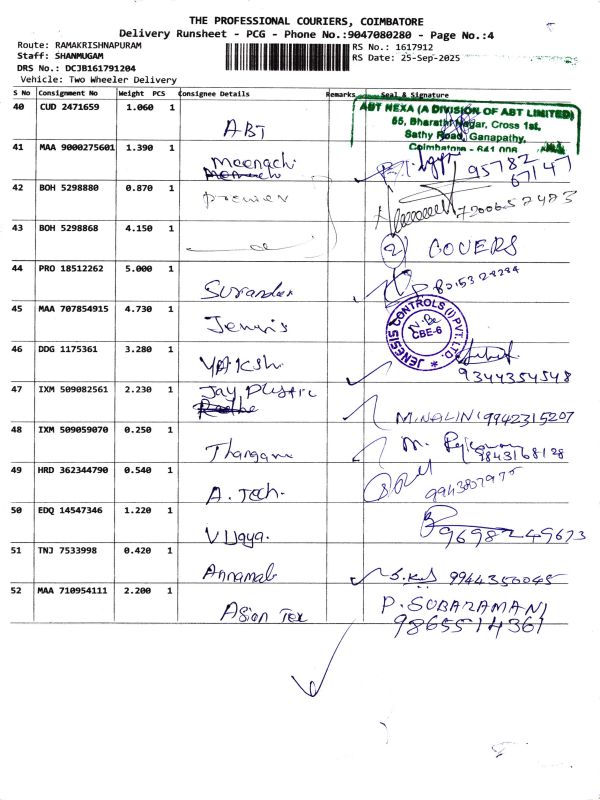 THE PROFESSIONAL COURIERS, COIMBATORE
Delivery Runsheet - PCG - Phone No.:9047080280 - Page No.:4
Route: RAMAKRISHNAPURAM
RS No.: 1617912
Staff: SHANMUGAM
RS Date: 25-Sep-2025
DRS No.: DCJB161791204
Vehicle: Two Wheeler Delivery
S No Consignment No Weight PCS Consignee Details Remarks Seal & Signature
40 CUD 2471659 1.060 1 ABT
ABT NEXA (A DIVISION OF ABT LIMITED)
65, Bharathi Nagar, Cross 1st,
Sathy Road, Ganapathy,
Coimbatore - 641 006
41 MAA 9000275601 1.390 1 Meenachi 95782
67147
42 BOH 5298880 0.870 1 premier 7200652483
43 BOH 5298868 4.150 1 2 COVERS
44 PRO 18512262 5.000 1 Surandar
45 MAA 707854915 4.730 1 Jennis
JENESIS CONTROLS (I) PVT. LTD.
CBE-6
46 DDG 1175361 3.280 1 YAKSHI
9344354548
47 IXM 509082561 2.230 1 Jay Plastic
MINALINI 9942315207
48 IXM 509059070 0.250 1 Thangam M.
9843168128
49 HRD 362344790 0.540 1 A. Tech. 9943807975
50 EDQ 14547346 1.220 1 Vijaya. 9698249673
51 TNJ 7533998 0.420 1 Annamal 9944350045
52 MAA 710954111 2.200 1 Asian Tex P. SUBARAMANI
9865514361